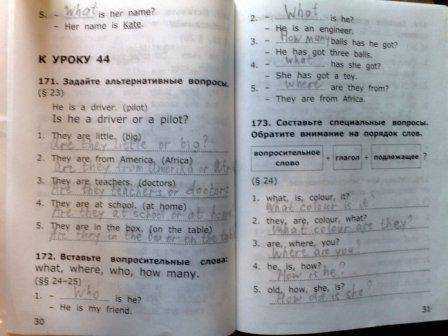 5. - What is her name?
- Her name is Kate.
К УРОКУ 44
171. Задайте альтернативные вопросы.
(§ 23)
He is a driver. (pilot)
Is he a driver or a pilot?
1. They are little. (big)
Are they little or big?
2. They are from America. (Africa)
Are they from Amerika or
3. They are teachers. (doctors)
Are they teachers or doctors
4. They are at school. (at home)
Are they at school or at home
5. They are in the box. (on the table)
Are they in the box or on the
172. Вставьте вопросительные слова:
what, where, who, how many.
(§§ 24–25)
1. - Who is he?
- He is my friend.
30
2. - What is he?
- He is an engineer.
3. - How many balls has he got?
- He has got three balls.
4. - what has she got?
- She has got a toy.
5. - Where are they from?
- They are from Africa.
173. Составьте специальные вопросы.
Обратите внимание на порядок слов.
вопросительное слово + глагол + подлежащее ?
(§ 24)
1. what, is, colour, it?
What colour is it?
2. they, are, colour, what?
What colour are they?
3. are, where, you?
Where are you?
4. he, is, how?
How is he?
5. old, how, she, is?
How old is she
31